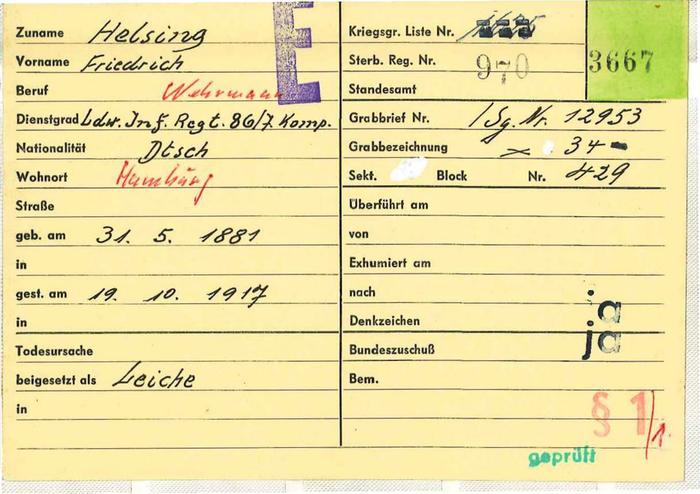 E
Zuname Helsing
Vorname Friedrich
Beruf Wehrmann
Dienstgrad Ldw. Inf. Regt. 86/7. Komp.
Nationalität Dtsch
Wohnort Hamburg
Straße
geb. am 31. 5. 1881
in
gest. am 19. 10. 1917
in
Todesursache
beigesetzt als Leiche
in
Kriegsgr. Liste Nr.
Sterb. Reg. Nr. 970
3667
Standesamt
Grabbrief Nr. / Sg. Nr. 12953
Grabbezeichnung 34 -
Sekt. Block Nr. 429
Überführt am
von
Exhumiert am
nach
Denkzeichen ja
Bundeszuschuß ja
Bem.
§ 1/1
geprüft